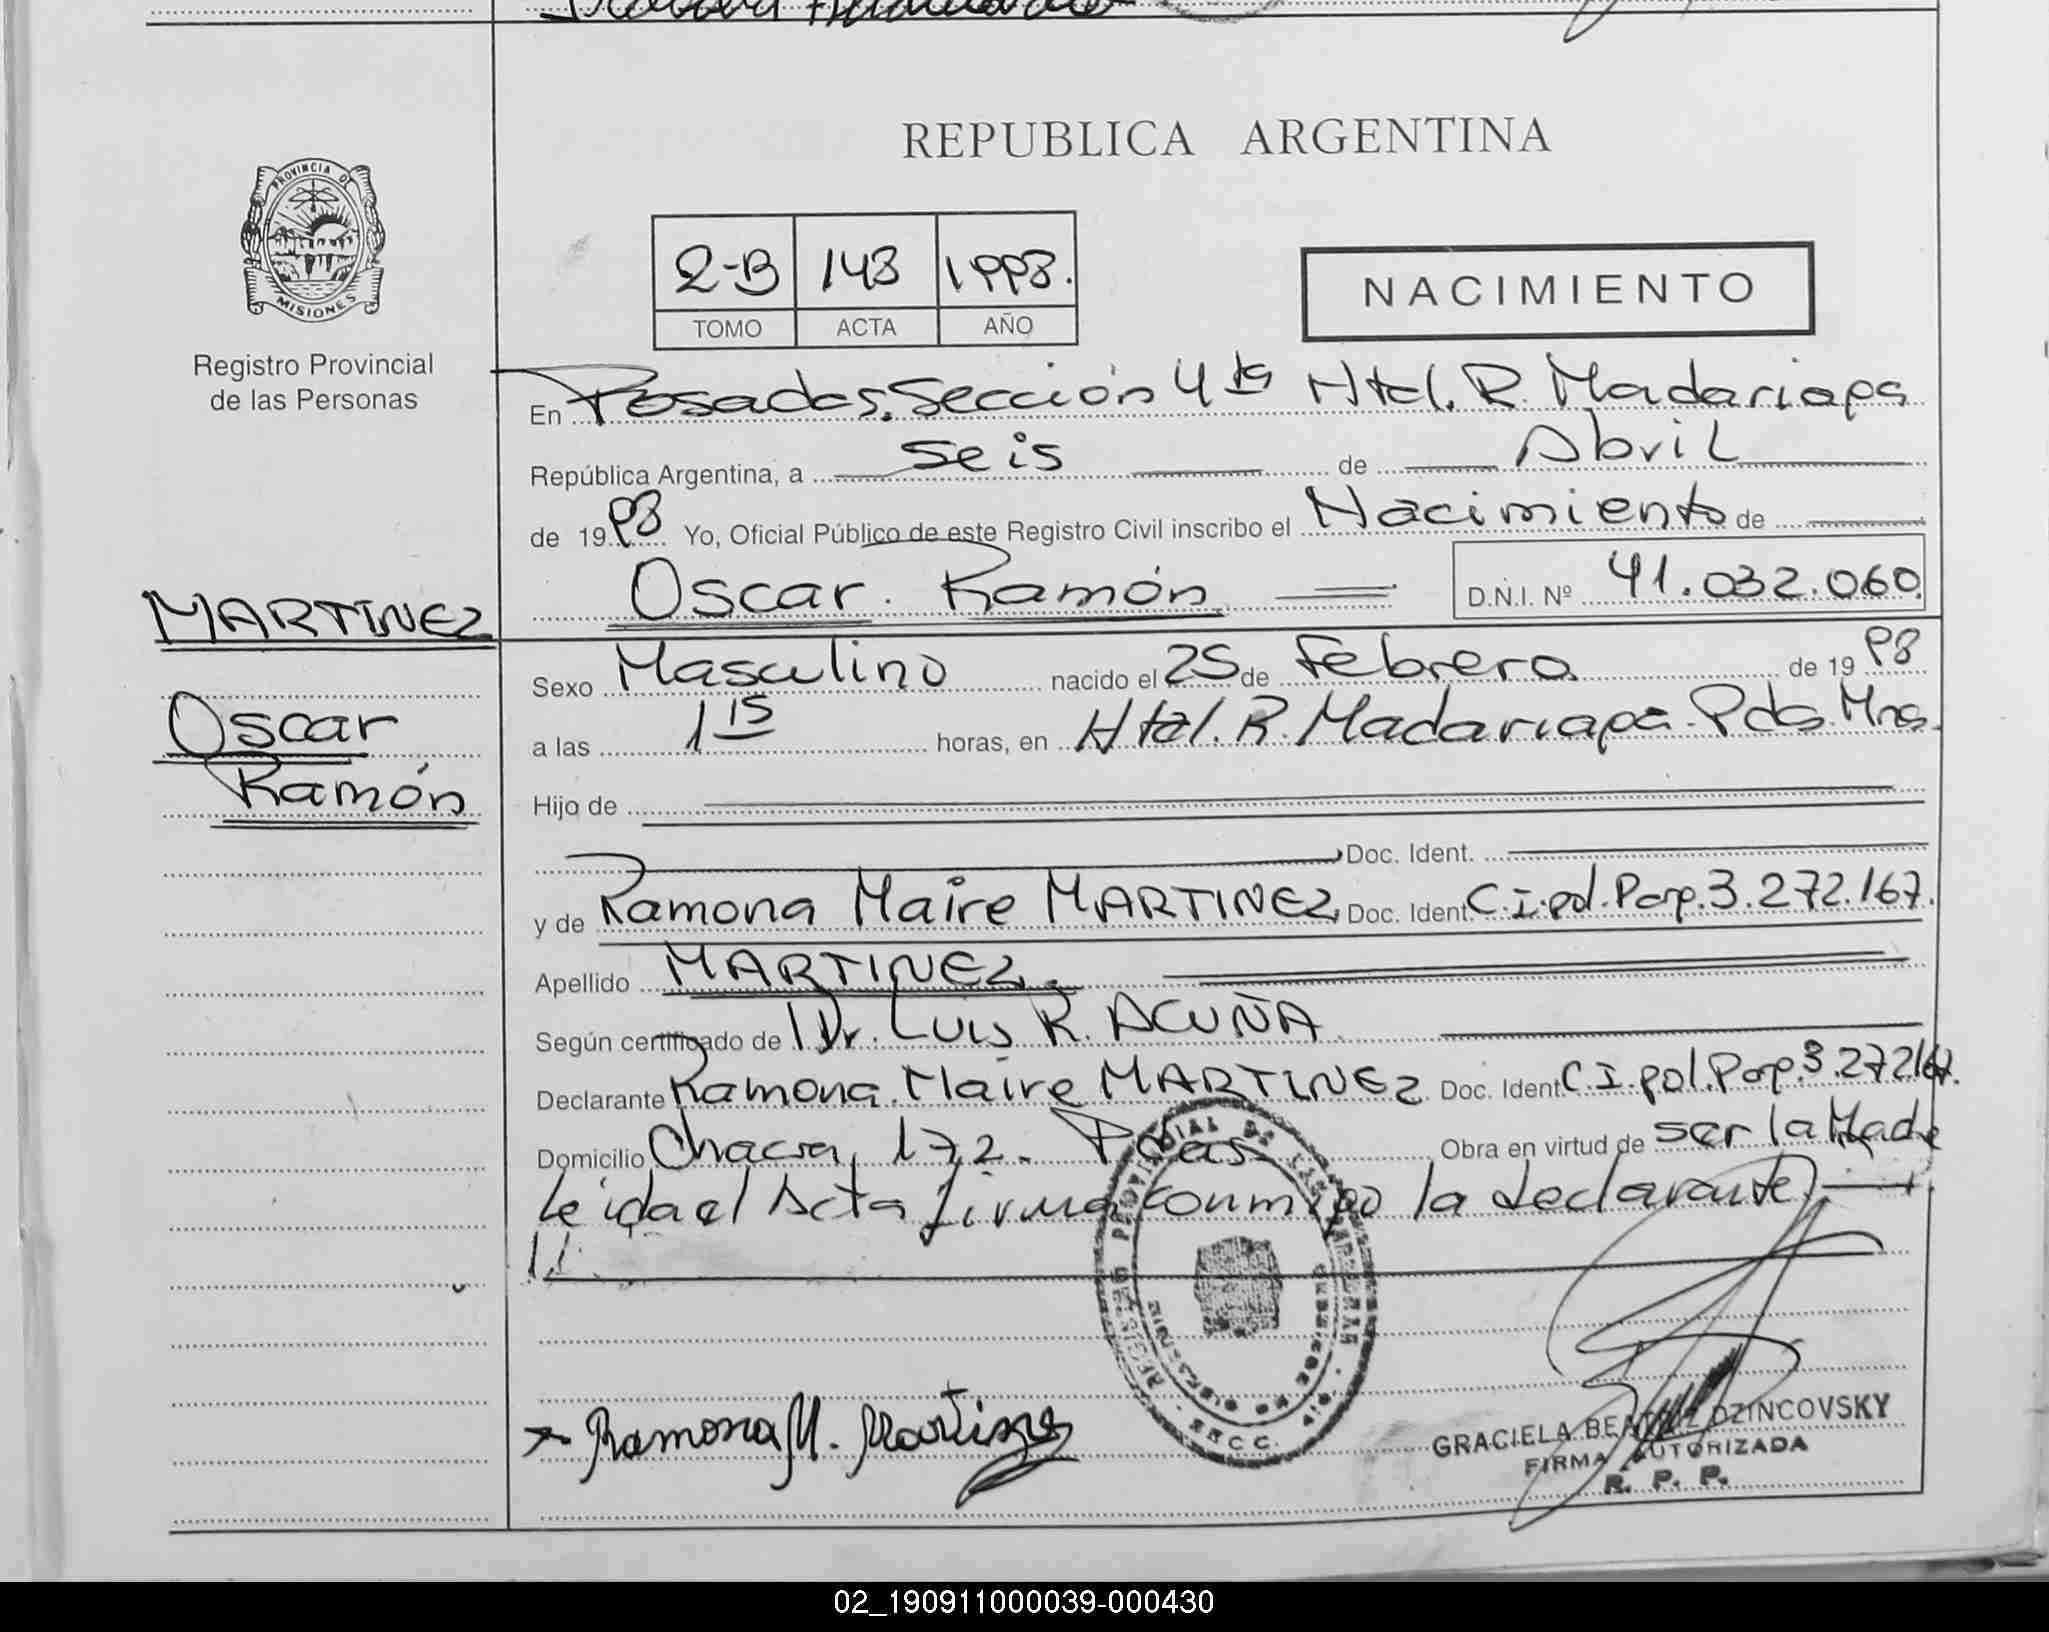 REPUBLICA ARGENTINA
PROVINCIA DE
MISIONES
Registro Provincial
de las Personas
2-B 143 1998.
TOMO ACTA AÑO
NACIMIENTO
En Posadas. Sección 4ta Htal. R. Madariaga
República Argentina, a seis de Abril
de 1998 Yo, Oficial Público de este Registro Civil inscribo el Nacimiento de
Oscar Ramón D.N.I. Nº 41.032.060
MARTINEZ
Oscar
Ramón
Sexo Masculino nacido el 25 de Febrero de 1998
a las 1 15 horas, en Htal. R. Madariaga Pdas. Mnes.
Hijo de
Doc. Ident.
y de Ramona Maire MARTINEZ Doc. Ident. C.I. pol. Parp. 3.272.167.
Apellido MARTINEZ.
Según certificado de Dr. Luis R. ACUÑA
Declarante Ramona Maire MARTINEZ Doc. Ident. C.I. pol. Parp. 3.272167.
Domicilio Chacra 172. Pdas. Obra en virtud de ser la Madre
Leida el Acta firma conmigo la declarante)
Ramona M. Martinez
GRACIELA BEATRIZ DZINCOVSKY
FIRMA AUTORIZADA
R. P. P.
02_190911000039-000430